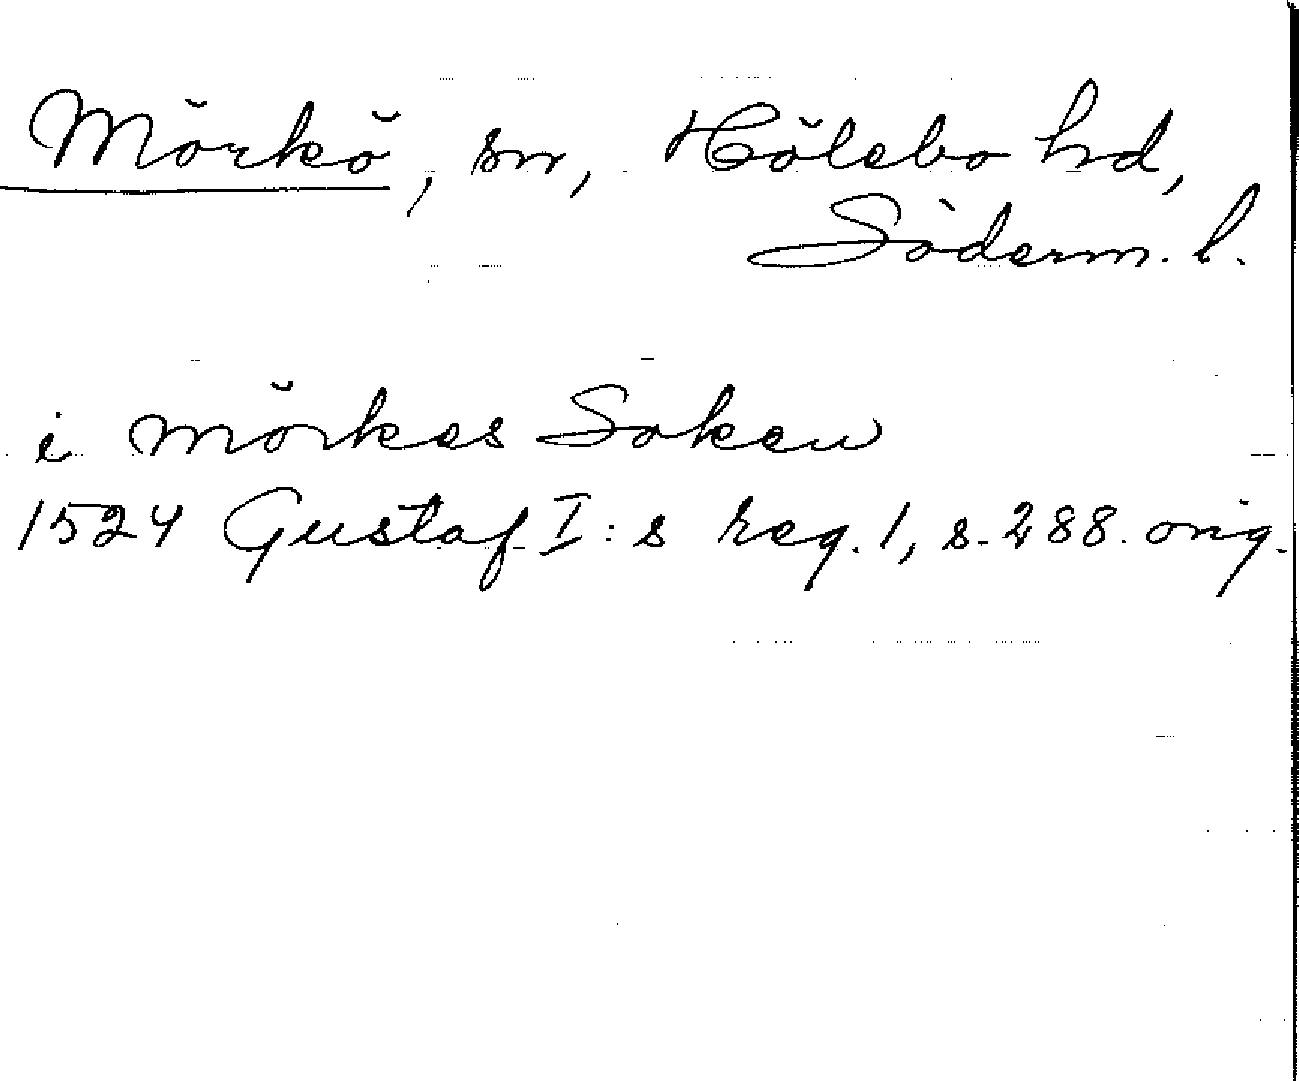 Mörkö, sn, Hölebo hd,
Söderm. l.
i mörkes Soken
1524 Gustaf I:s reg. 1, s. 288. orig.